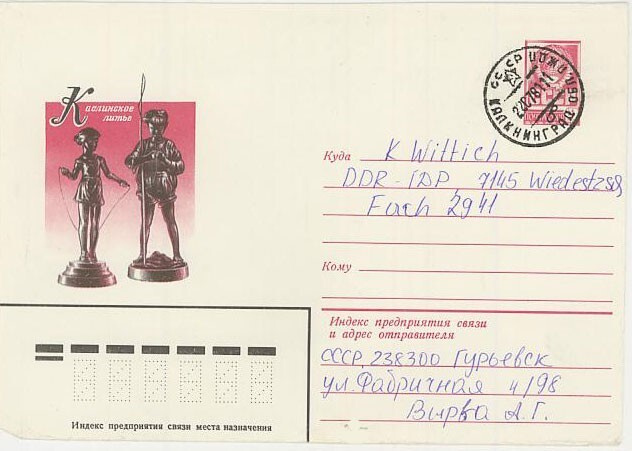 Каслинское
литье
СССР
КАЛИНИНГРАД
Куда K Wittich
DDR-IDP, 7145
Fach 2941
Кому
Индекс предприятия связи
и адрес отправителя
СССР, 238300 Гурьевск
ул. Фабричная 4/98
Вирка А.Г.
Индекс предприятия связи места назначения